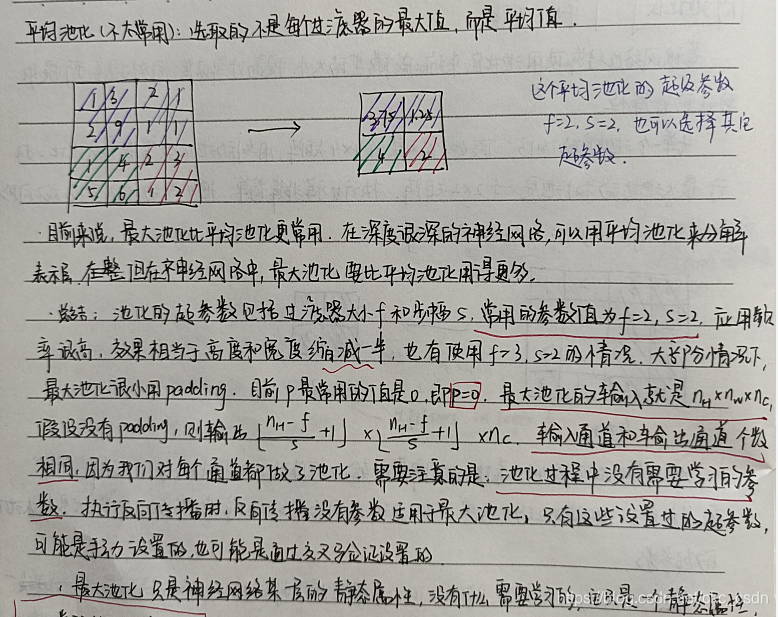 平均池化(不太常用):选取的不是每个过滤器的最大值,而是平均值.
1 3 2 1
2 9 1 1
1 4 2 3
5 6 1 2
3.75 1.25
4 2
这个平均池化的超级参数
f=2, s=2, 也可以选择其它
超参数.
·目前来说,最大池化比平均池化更常用. 在深度很深的神经网络,可以用平均池化来分解
表示层. 在整个神经网络中,最大池化要比平均池化用得更多.
·总结:池化的超参数包括过滤器大小f和步幅s, 常用的参数值为f=2, s=2, 应用频
率很高,效果相当于高度和宽度缩减一半,也有使用f=3, s=2的情况. 大部分情况下,
最大池化很小用padding. 目前p最常用的值是0,即p=0. 最大池化的输入就是nH×nW×nC,
假设没有padding,则输出⌊(nH-f)/s+1⌋×⌊(nH-f)/s+1⌋×nC. 输入通道和输出通道个数
相同,因为我们对每个通道都做了池化. 需要注意的是:池化过程中没有需要学习的参
数. 执行反向传播时,反向传播没有参数适用于最大池化,只有这些设置过的超参数,
可能是手动设置的,也可能是通过交叉验证设置的.
·最大池化只是神经网络某一层的静态属性,没有什么需要学习的,它只是一个静态属性.